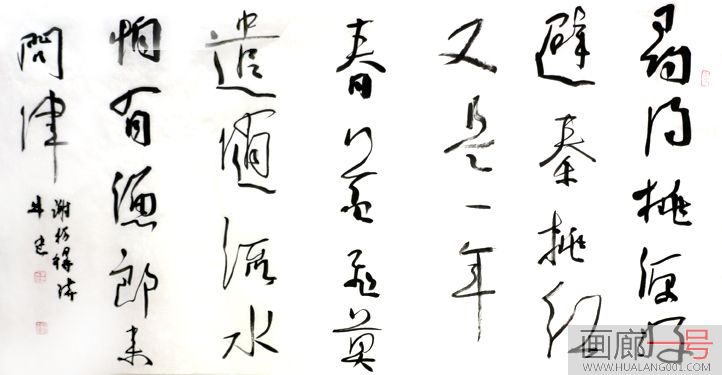 尋得桃源好
避秦桃紅
又是一年
春花飛莫
遣隨流水
怕有漁郎来
問津
謝枋得詩
画廊一号
WWW.HUALANG001.COM